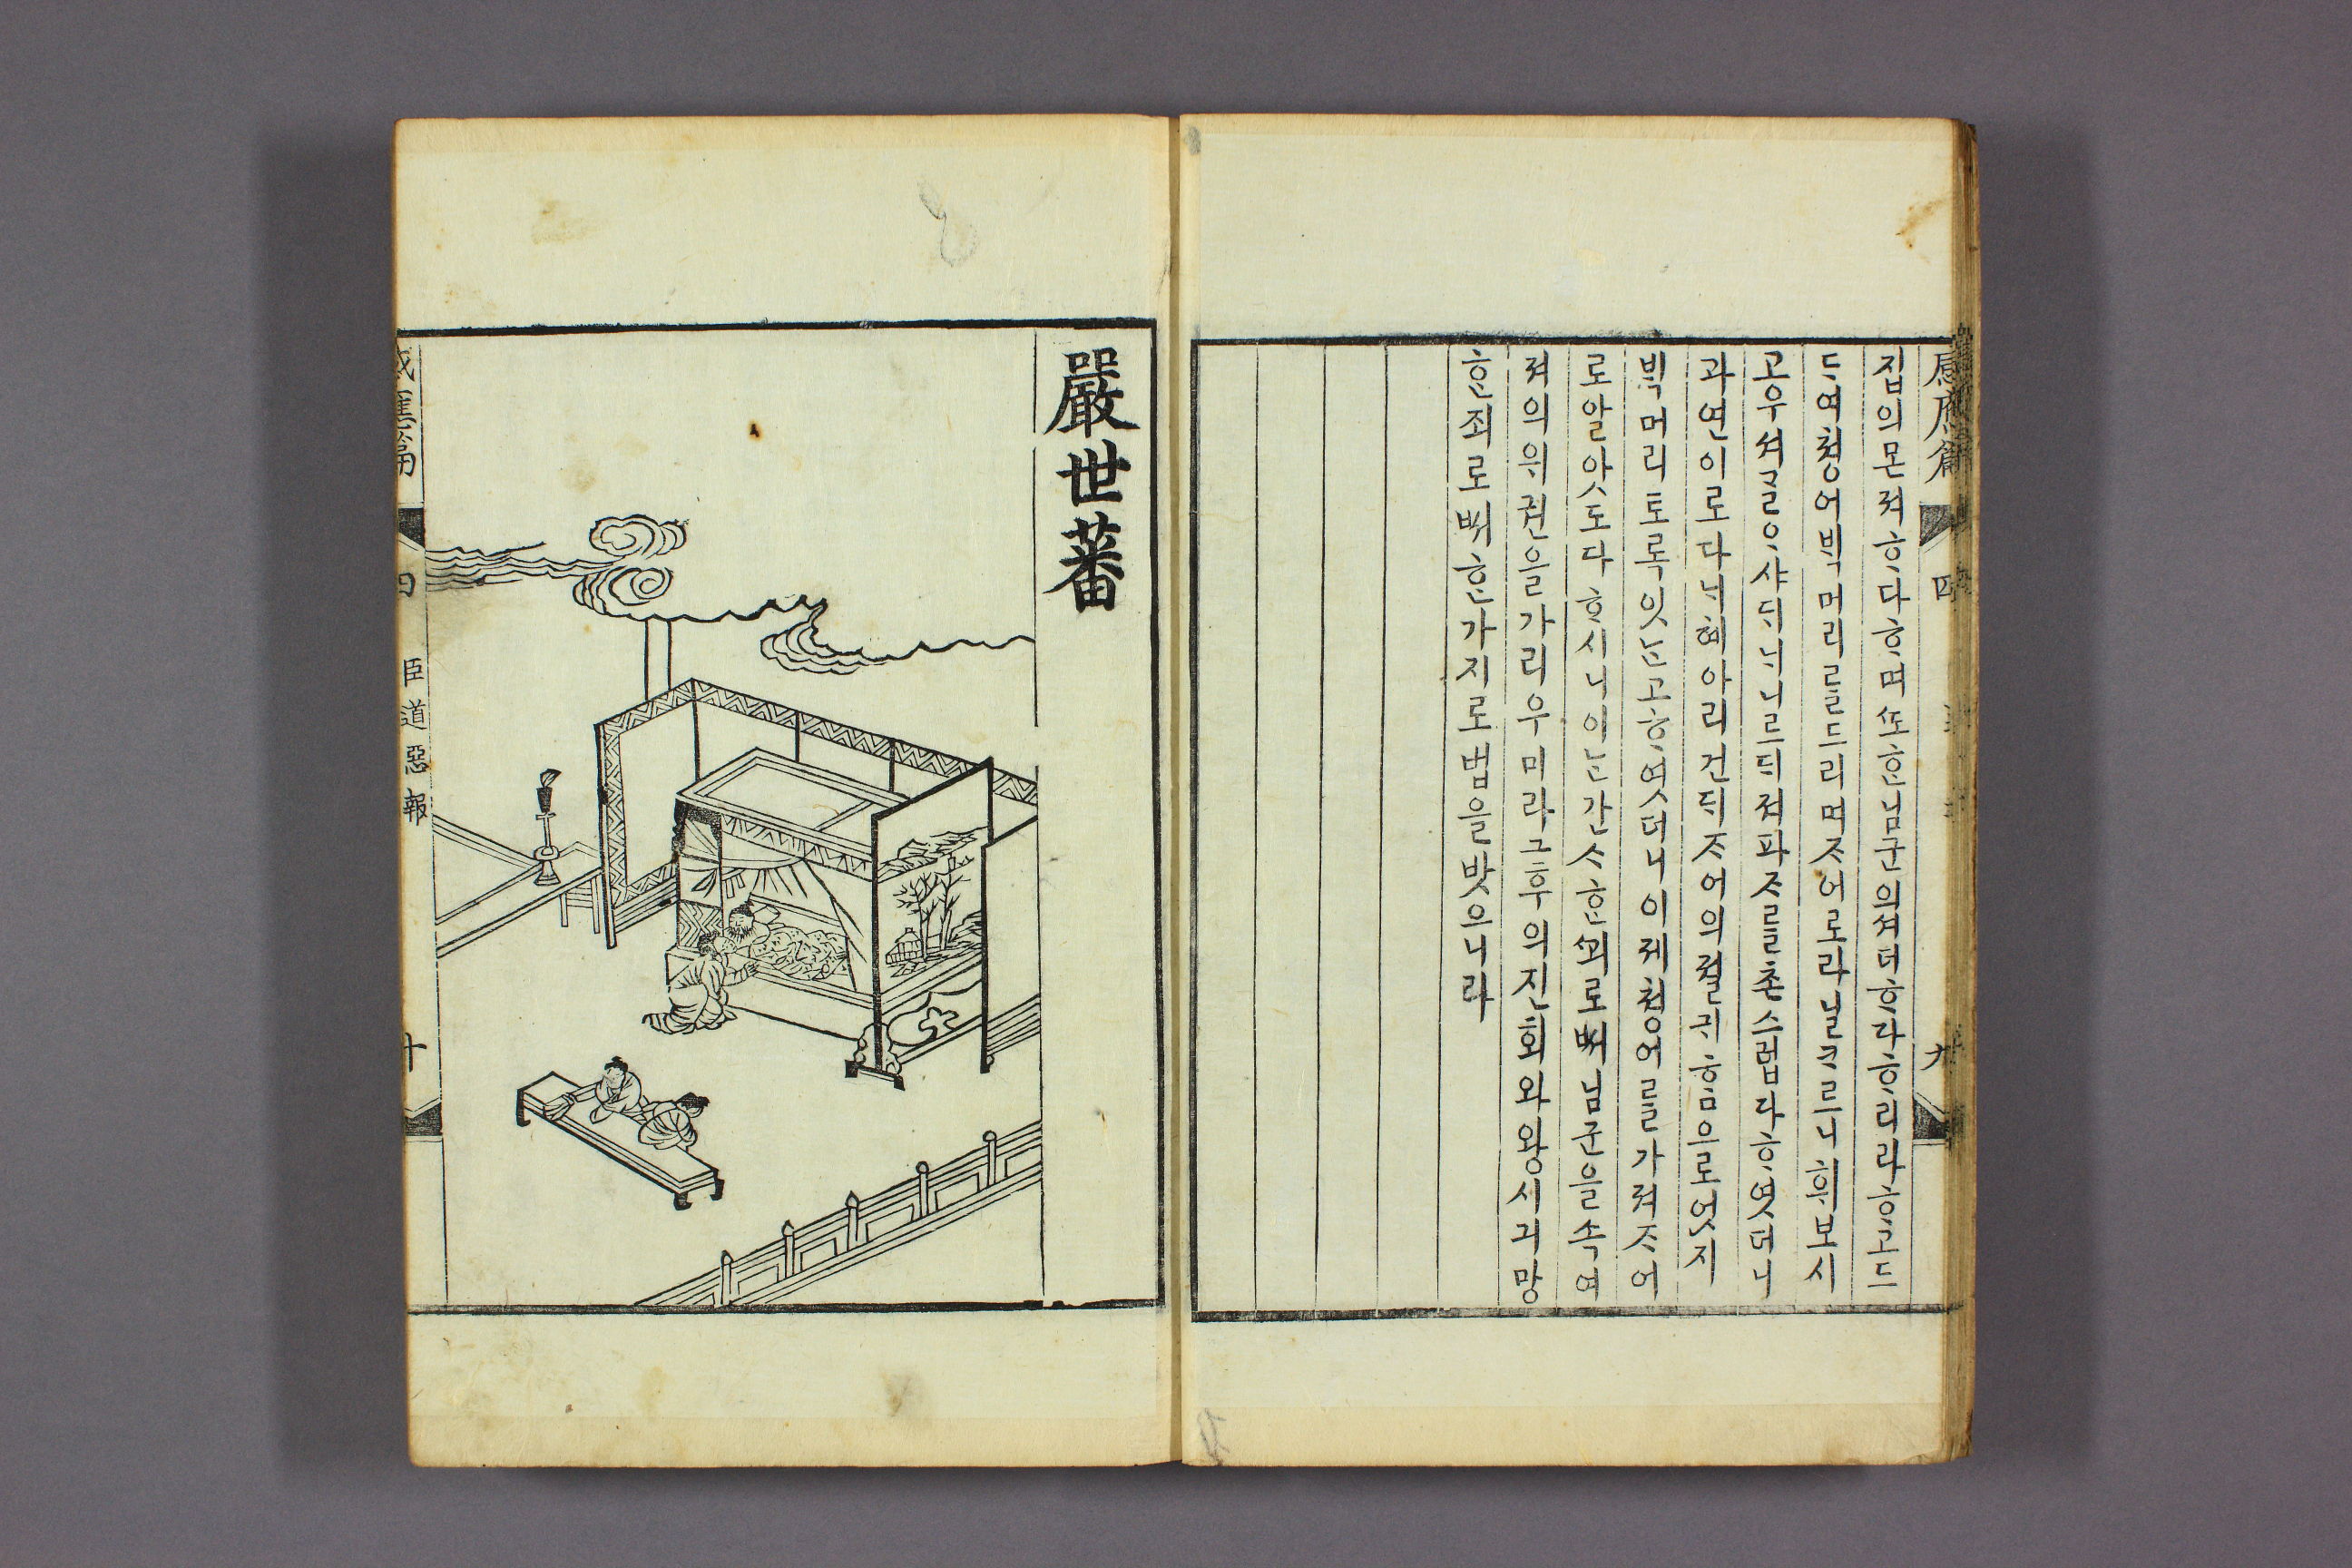 感應篇 四 九
집의몬져ᄒᆞ다ᄒᆞ며ᄯᅩᄒᆞᆫ님군의셔더ᄒᆞ라ᄒᆞ리라ᄒᆞ고드
ᄃᆞ여쳥어ᄇᆡᆨ머리ᄅᆞᆯ드리며ᄌᆞ어로라닐ᄏᆞᄅᆞ니휘보시
고우셔ᄀᆞᆯᄋᆞ샤ᄃᆡᄂᆡ니ᄅᆞᄃᆡ져파ᄌᆞᄅᆞᆯ촌스럽다ᄒᆞ엿더니
과연이로다ᄂᆡ혜아리건ᄃᆡᄌᆞ어의졀귀ᄒᆞᆷ으로엇지
ᄇᆡᆨ머리토록잇ᄂᆞᆫ고ᄒᆞ엿더니이졔쳥어ᄅᆞᆯ가져ᄌᆞ어
로알앗도다ᄒᆞ시니이ᄂᆞᆫ간ᄉᆞᄒᆞᆫᄭᅬ로ᄡᅥ님군을속여
져의위권을가리우미라그후의진회와왕시긔망
ᄒᆞᆫ죄로ᄡᅥᄒᆞᆫ가지로범을밧으니라
嚴世蕃
感應篇 四 臣道惡報 十